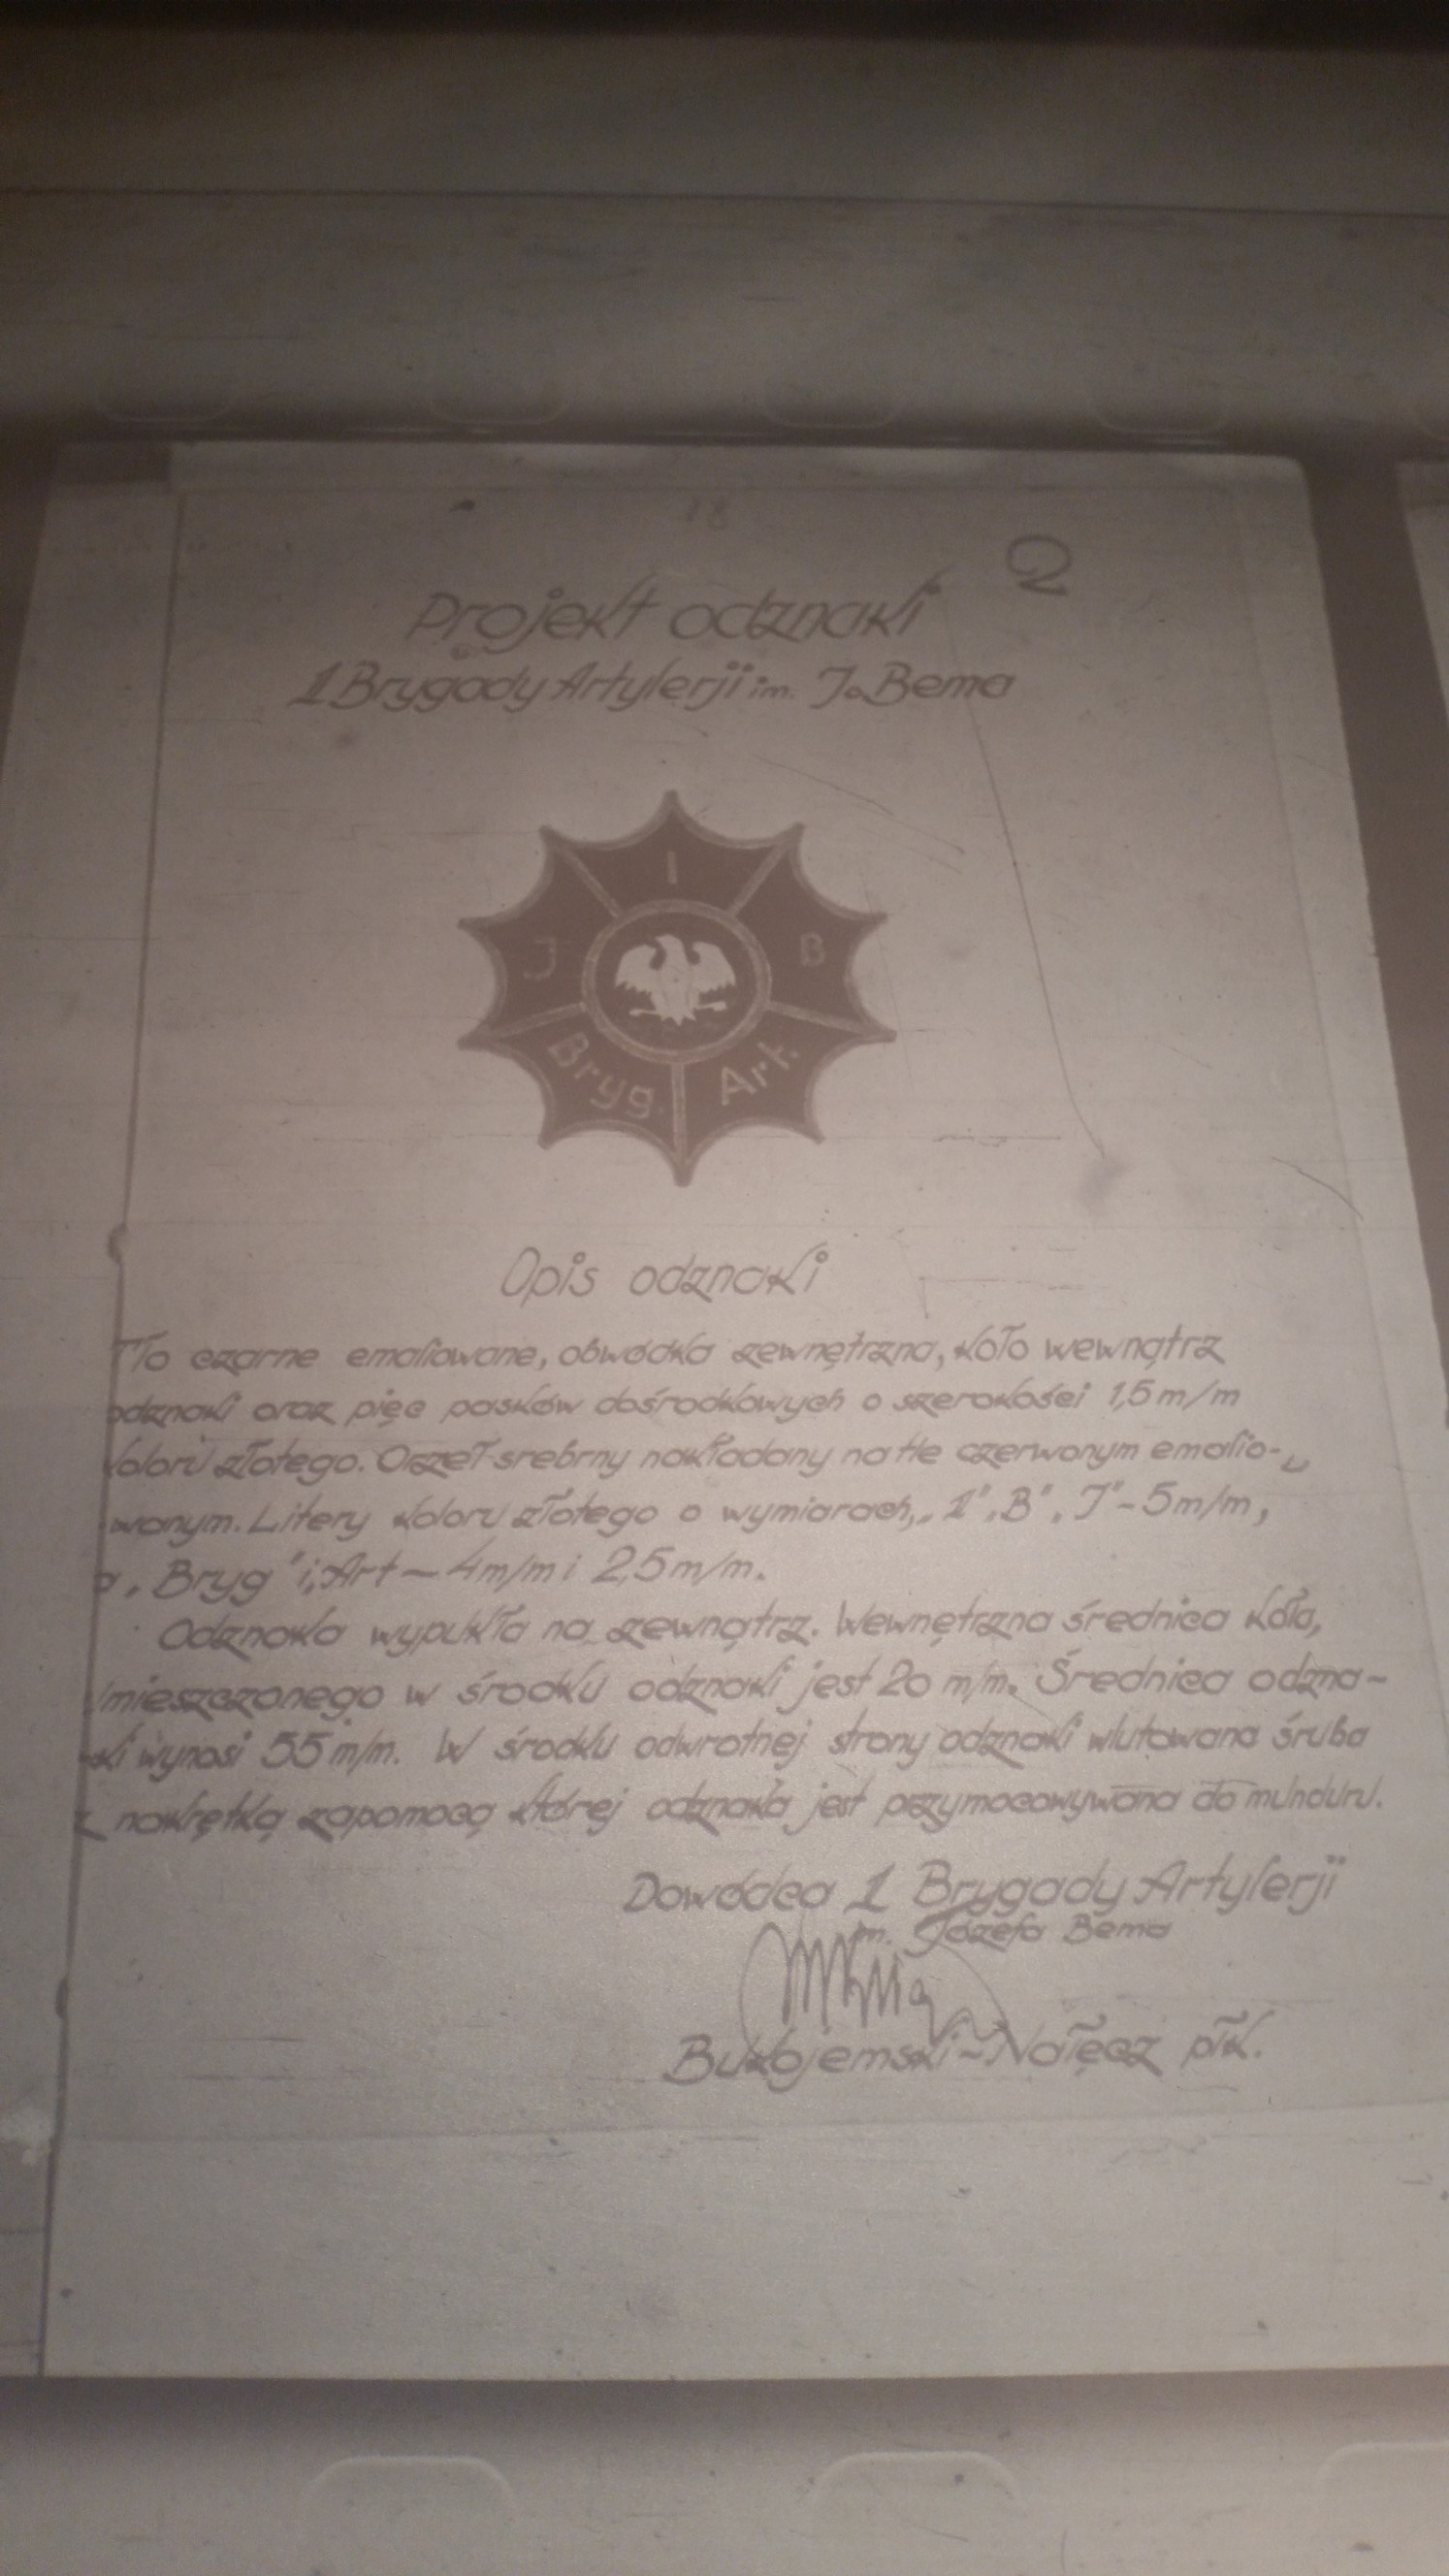 18
2
Projekt odznaki
1 Brygady Artylerji im. J. Bema
I
J B
Bryg. Art.
Opis odznaki
Tło czarne emaliowane, obwódka zewnętrzna, koło wewnątrz
odznaki oraz pięć pasków dośrodkowych o szerokości 1,5 m/m
koloru złotego. Orzeł srebrny nakładany na tle czerwonym emalio-
wanym. Litery koloru złotego o wymiarach, „1" „B" „J" - 5 m/m,
a „Bryg" i „Art - 4 m/m i 2,5 m/m.
Odznaka wypukła na zewnątrz. Wewnętrzna średnica koła,
umieszczonego w środku odznaki jest 20 m/m. Średnica odzna-
ki wynosi 55 m/m. W środku odwrotnej strony odznaki wlutowana śruba
z nakrętką zapomocą której odznaka jest przymocowywana do munduru.
Dowódca 1 Brygady Artylerji
im. Józefa Bema
Bukojemski-Nałęcz płk.